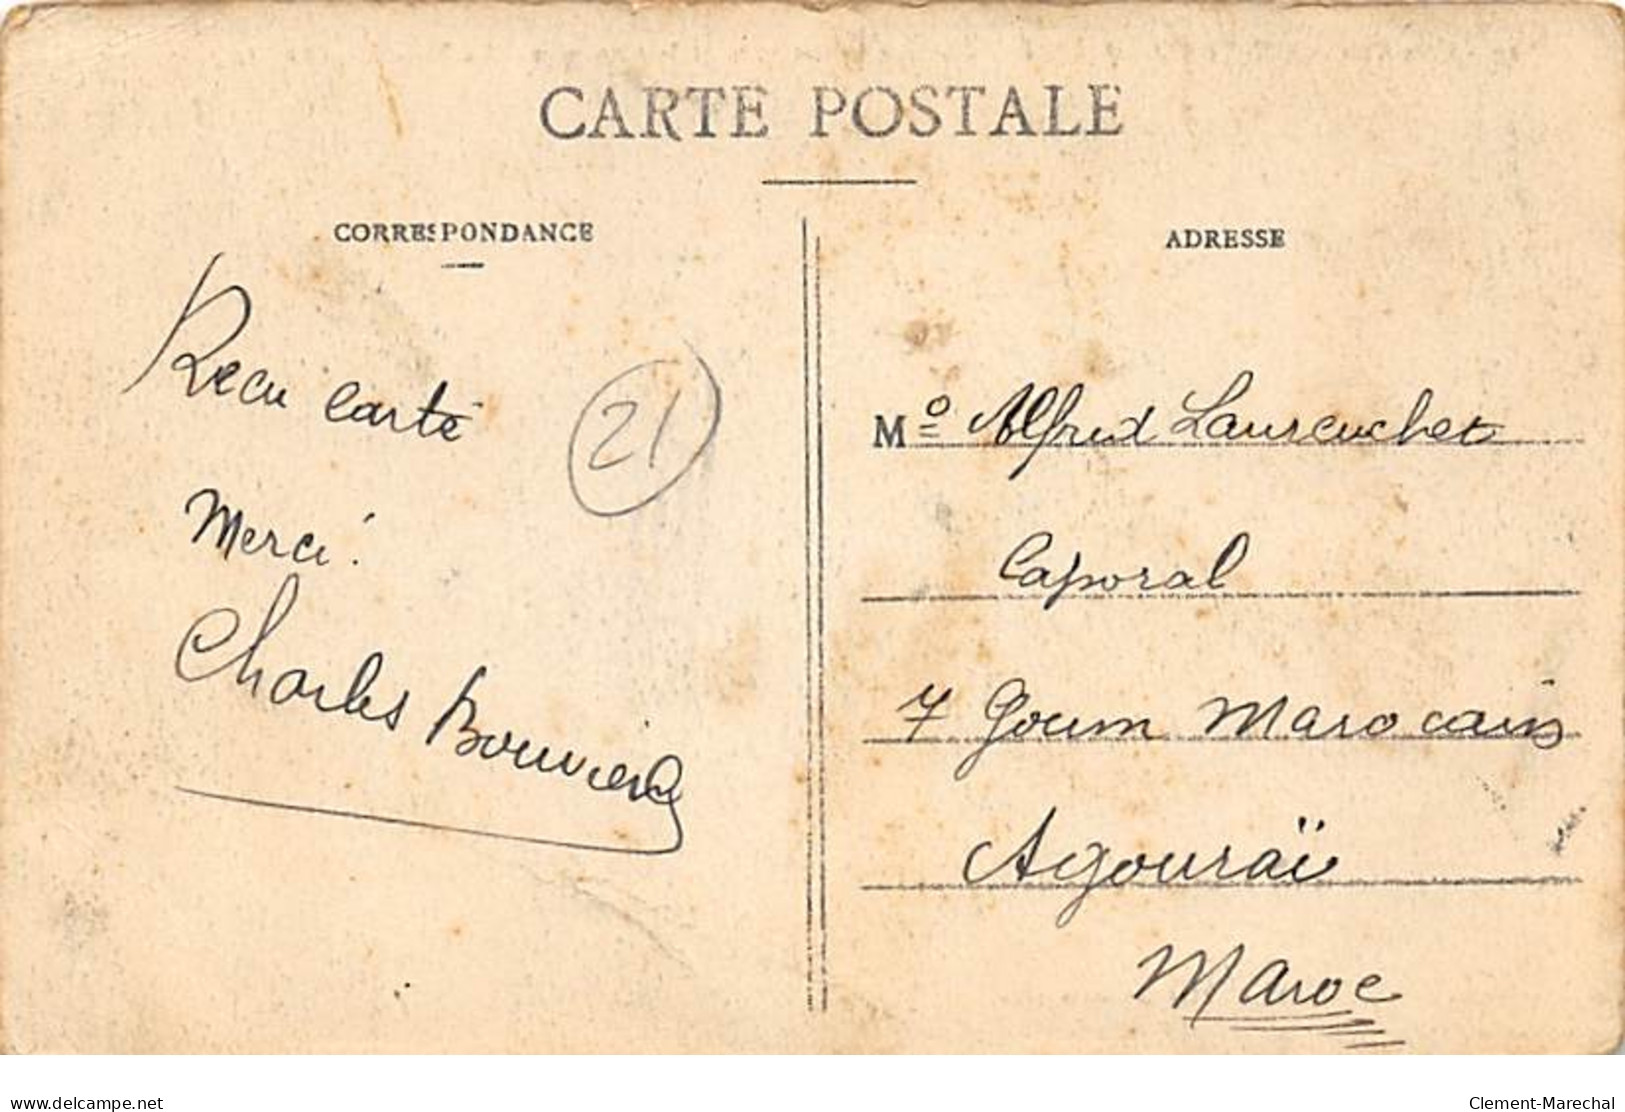 CARTE POSTALE
CORRESPONDANCE
ADRESSE
Recu carte
21
Merci!
Charles Bouvier
Mº Alfred Laurenchet
Caporal
7 Goum Marocains
Agouraï
Maroc
www.delcampe.net
Clement-Marechal